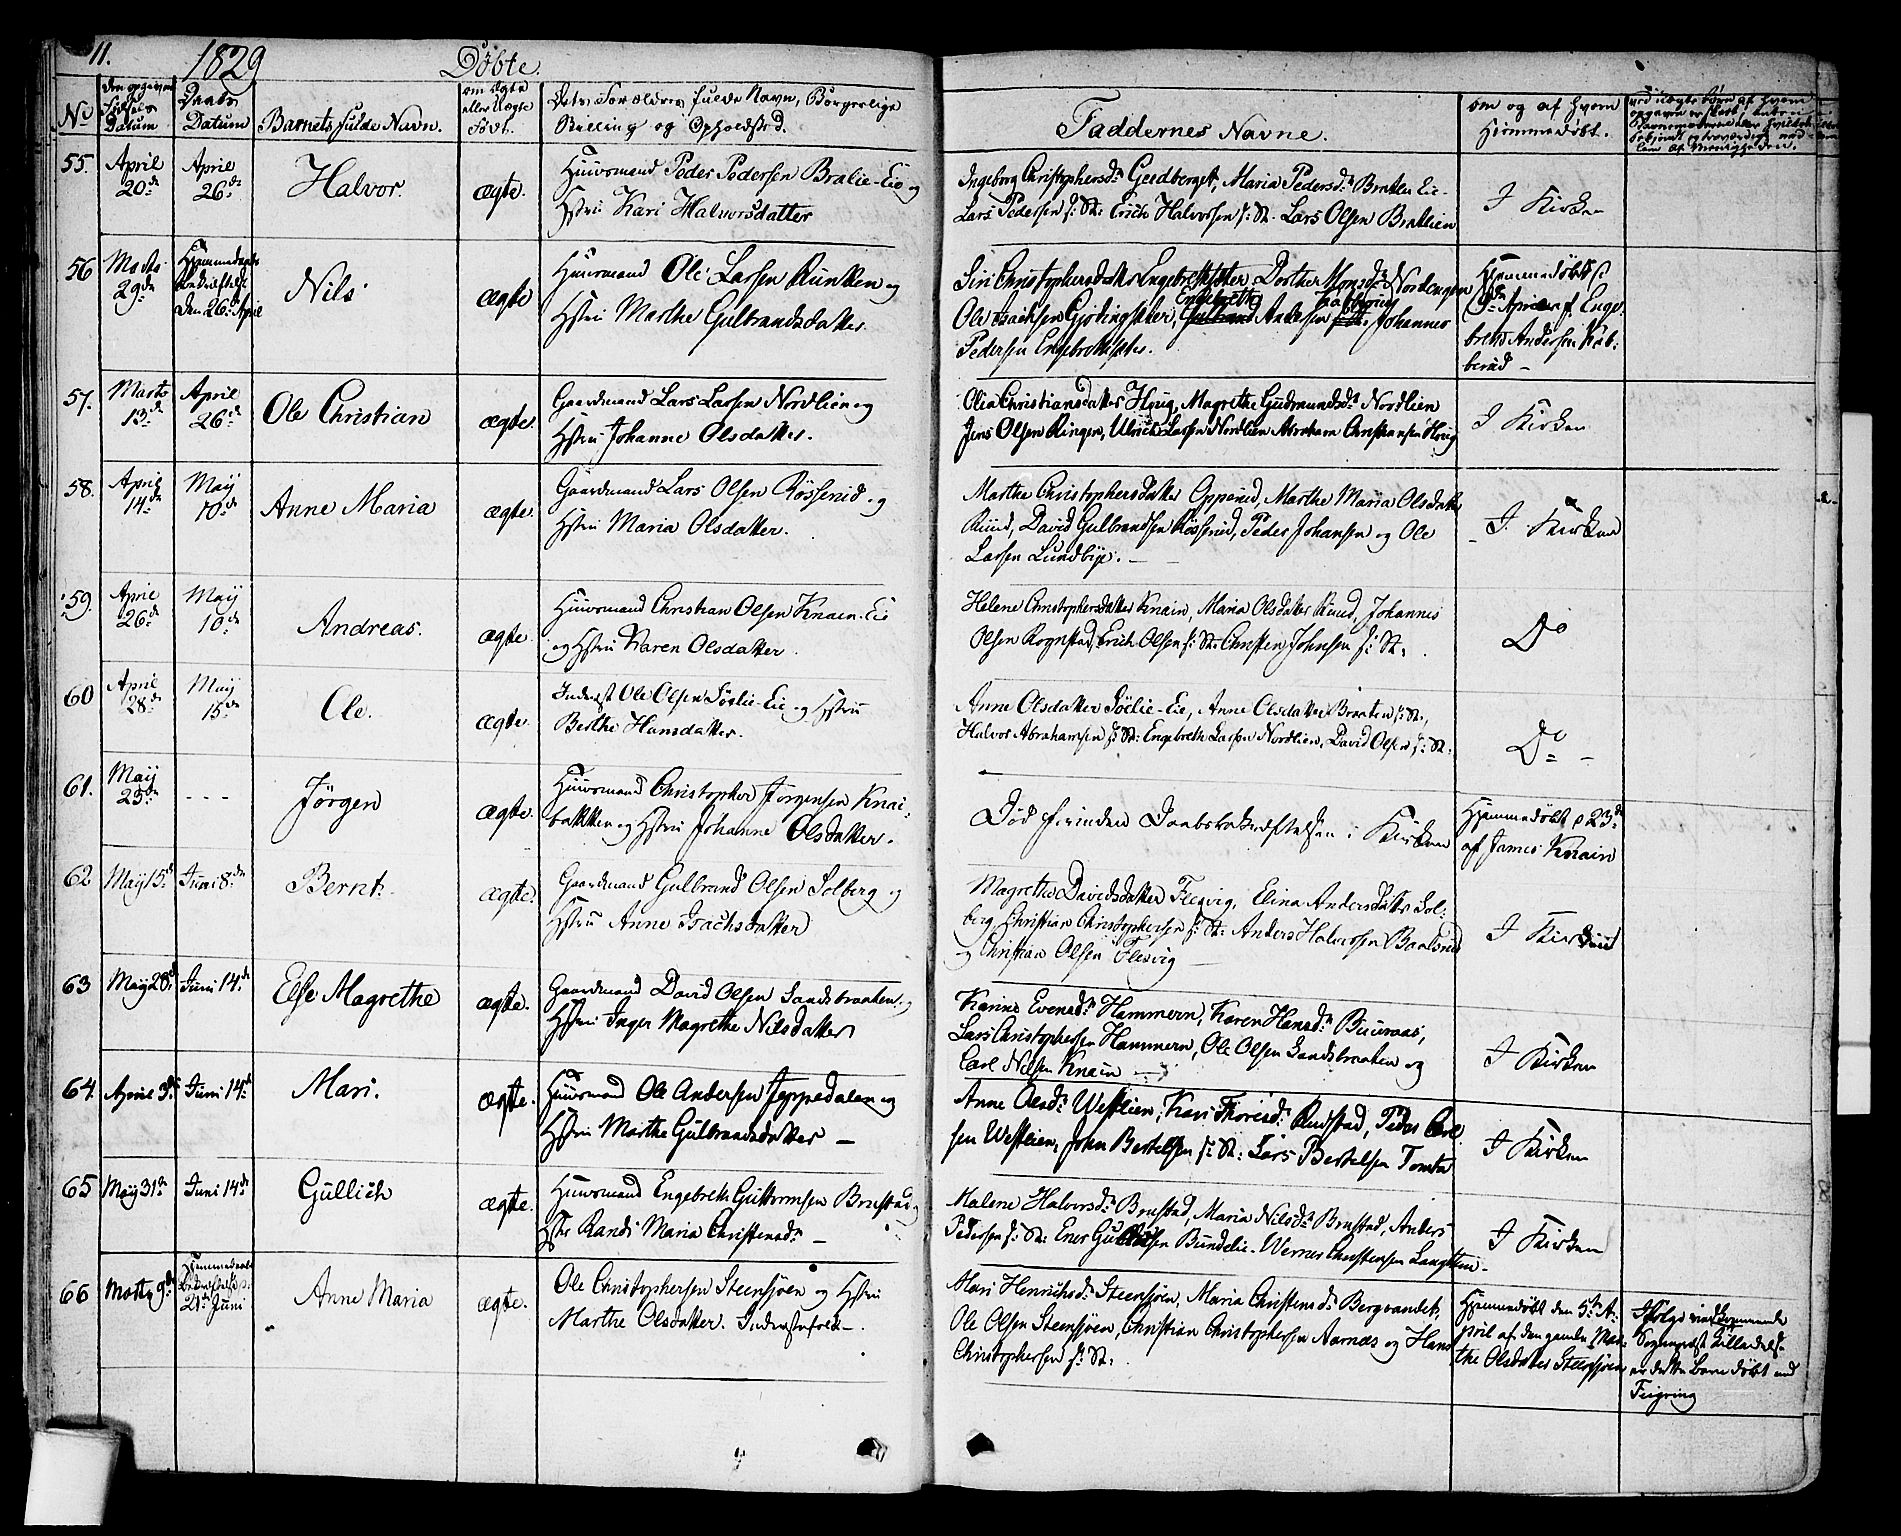 11. 1829 Døbte.
No
Fødsels Datum
Daabs Datum
Barnets fulde Navn.
om ægte eller uægte Født.
Dets Forældres fulde Navn, Borgerlige
Stilling og Opholdsted.
Faddernes Navne.
om og af hvem
hjemmedøbt.
55. April 20de April 26de Halvor. ægte.
Huusmand Peder Pedersen Bralie-Eie og
Hstru Kari Halvorsdatter
Ingeborg Christophersdr Geedberget, Maria Pedersdr Braten Eie-
Lars Pedersen s: St: Erich Halvorsen s: St. Lars Olsen Bratlien
I Kirken
56 Marts 29de Hjemmedaabs Bekræftelse den 26de April Nils. ægte
Huusmand Ole Larsen Runken og
Hstru Marthe Gulbrandsdatter.
Siri Christophersdatter Engebret Dorthe Monsdr Nordengen
Engebreth
Ole Isachsen Gjødingsæter, Gulbrand Andersen Johannes
Pedersen
Hjemmedøbt
April af Enge-
breth Andersen Kab-
berud -
57. Marts 13de April 26de Ole Christian ægte.
Gaardmand Lars Larsen Nordlien og
Hstru Johanne Olsdatter.
Olia Christiansdatter Høug, Magrethe Gudmundsdr Nordlien
Jens Olsen Ringen, Ulrich Larsen Nordlien Abraham Christiansen Høug
I Kirken
58. April 14de May 10de Anne Maria ægte.
Gaardmand Lars Olsen Røsserud og
Hstru Maria Olsdatter.
Marthe Christophersdatter Opperud, Marthe Maria Olsdatter
Ruud, David Gulbrandsen Røsserud, Peder Johansen og Ole
Larsen Lundbye. -
I. Kirken
59. April 26de May 10de Andreas. ægte.
Huusmand Christian Olsen Knain-Eie
og Hstru Karen Olsdatter.
Helene Christophersdatter Knain, Maria Olsdatter Ruud, Johannes
Olsen Rognstad, Erich Olsen s: St: Christen Johnsen s: St:
Do
60 April 28de May 15de Ole. ægte.
Inderst Ole Olsen Sørlie-Eie og Hstru
Berthe Hansdatter.
Anne Olsdatter Sørlie-Eie, Anne Olsdatter Braaten s: St.,
Halvor Abrahamsen s: St: Engebreth Larsen Nordlien, David Olsen s: St:
Do -
61. May 23de - - - Jørgen ægte.
Huusmand Christopher Jørgensen Knai-
bakken og Hstru Johanne Olsdatter.
Død førinden Daabsbekræftelsen i Kirken
Hjemmedøbt d 23de
af James Knain
62 May 15de Juni 8de Bernt. ægte.
Gaardmand Gulbrand Olsen Solberg og
Hstru Anne Isachsdatter
Magrethe Davidsdatter Flesvig, Elina Andersdatter Sol-
berg Christian Christophersen s: St: Anders Halvorsen Baalsrud
og Christian Olsen Flesvig -
I Kirken
63 May 28de Juni 14de Else Magrethe ægte.
Gaardmand David Olsen Sandsbraaten og
Hstru Inger Magrethe Nilsdatter
Karine Evensdr Hammern, Karen Hansdr Buuraas,
Lars Christophersen Hammern, Ole Olsen Sandsbraaten og
Carl Nilsen Knain -
I Kirken
64. April 3de Juni 14de Mari. ægte.
Huusmand Ole Andersen Jeppedalen og
Hstru Marthe Gulbrandsdatter -
Anne Olsdr Westlien, Kari Thoresdr Rudstad, Peder Carl-
sen Westlien, John Bertelsen s: St: Lars Bertelsen Tomta
I Kirken
65 May 31te Juni 14de Gullich ægte.
Huusmand Engebreth Guttormsen Brustad og
Hstr Randi Maria Christensdr -
Malene Halvorsdr Brustad, Maria Nilsdr Brustad, Anders
Pedersen s: St: Bundelie. Werner Christensen Langsten -
I Kirken
66 Marts 9de 21de Juni Anne Maria ægte.
Ole Christophersen Steensjøen og Hstru
Marthe Olsdatter. Inderstefolk -.
Mari Henrichsdr Steensjøen, Maria Christensdr Bergvandet,
Ole Olsen Steensjøen, Christian Christophersen Aarnæs og Hans
Christophersen s: St:
Hjemmedøbt den 5te A-
pril af den gamle Mar-
the Olsdatter Steensjøen
Ifølge vedkommende
Sognepræst Tilladelse
er dette Barn døbt ved
Feiring